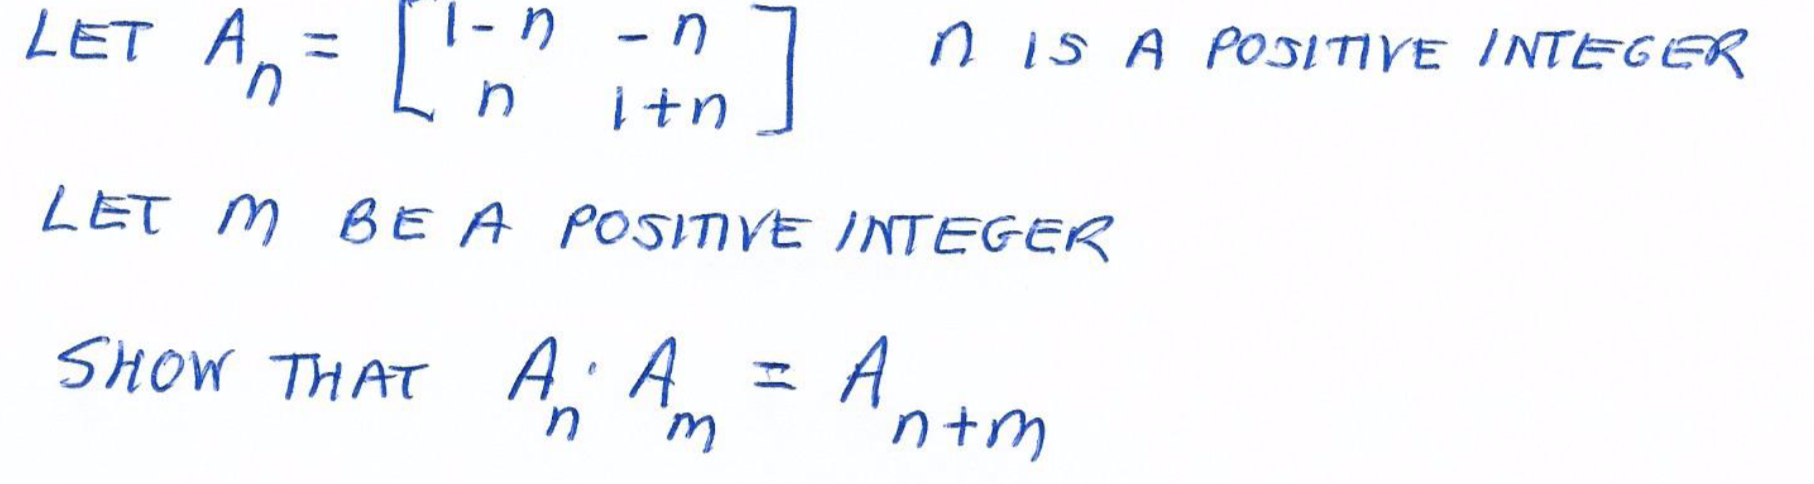 LET A_n = [ 1-n  -n ; n  1+n ]  n IS A POSITIVE INTEGER
LET m BE A POSITIVE INTEGER
SHOW THAT A_n · A_m = A_{n+m}